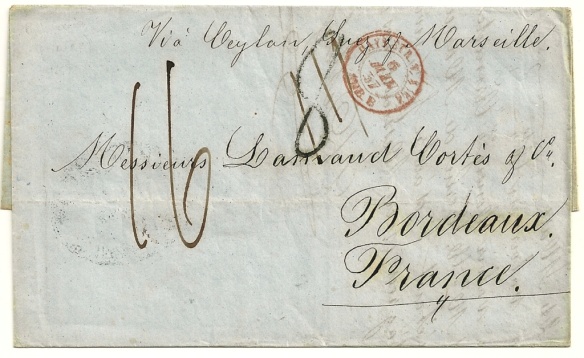 Viâ Ceylon, Suez & Marseille.
8
16
Messieurs Lamaud Cortès & Co.
Bordeaux.
France.